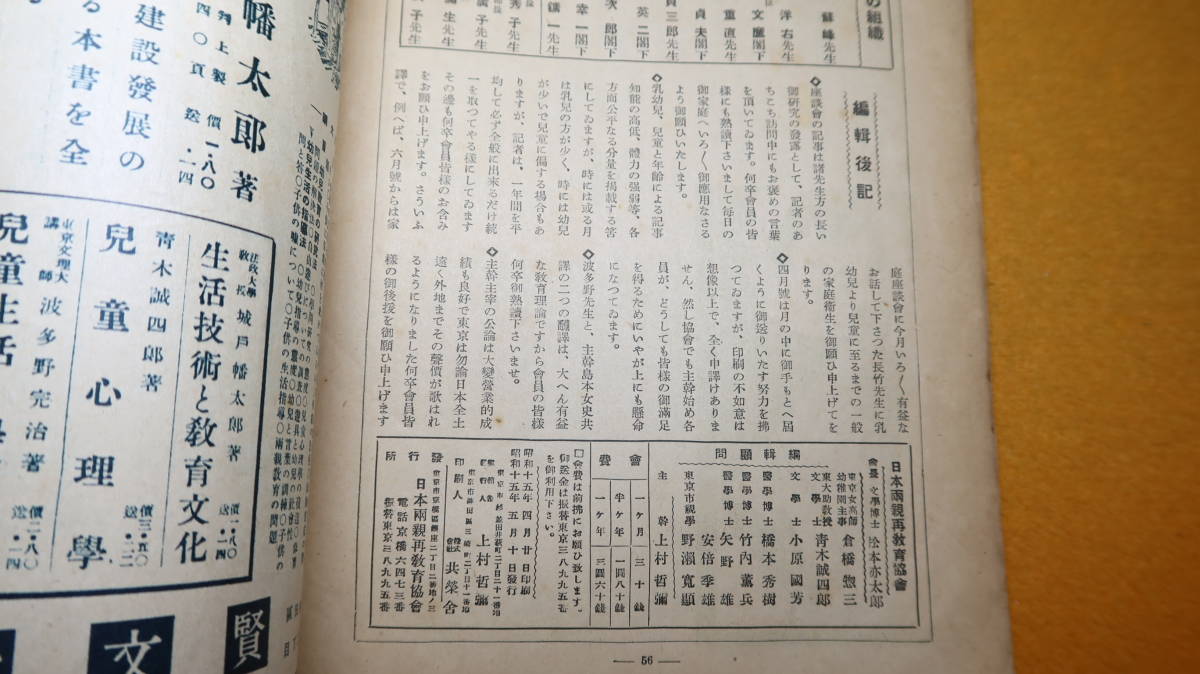 の組織
蘇峰先生
洋右先生
文鷹閣下
重直先生
貞夫閣下
貞三郎先生
英二閣下
次郎閣下
幸一閣下
鎮一先生
秀子先生
廣子先生
彌生先生
子先生
編輯後記
◇座談會の記事は諸先生方の長い
御研究の發露として、記者のあ
ちこち訪問中にもお褒めの言葉
を頂いてゐます。何卒會員の皆
樣にも熟讀下さいまして毎日の
御家庭へいろ〱御應用なさる
よう御願ひいたします。
◇乳幼兒、兒童と年齡による記事
知能の高低、體力の强弱等、各
方面公平なる分量を揭載する筈
にしてゐますが、時には或る月
は乳兒の方が少く、時には幼兒
が少いで兒童に偏する場合もあ
りますが、記者は、一年間を平
均して必ず全般に出來るだけ統
一を取つてやる樣にしてゐます
その邊も何卒會員皆樣のお含み
をお願ひ申上げます。さういふ
譯で、例へば、六月號からは家
庭座談會に今月いろ〱有益な
お話して下さつた長竹先生に乳
幼兒より兒童に至るまでの一般
の家庭衞生を御願ひ申上げてを
ります。
◇四月號は月の中に御手もとへ届
くように御送りいたす努力を拂
つてゐますが、印刷の不如意は
想像以上で、全く申譯けありま
せん、然し協會でも主幹始め各
員が、どうしても皆樣の御滿足
を得るためにいやが上にも懸命
になつてゐます。
波多野先生と、主幹島本女史共
譯の二つの飜譯は、大へん有益
な敎育理論ですから會員の皆樣
何卒御熟讀下さいませ。
◇主幹主宰の公論は大變營業的成
績も良好で東京は勿論日本全土
遠く外地までその聲價が歌はれ
るようになりました何卒會員皆
樣の御後援を御願ひ申上げます
日本兩親再敎育協會
會長 文學博士 松本亦太郎
編輯顧問
東京女高師幼稚園主事 倉橋惣三
東大助敎授文學士 靑木誠四郎
文學士 小原國芳
醫學博士 橋本秀樹
醫學博士 竹內薰兵
安倍季雄
醫學博士 矢野雄
東京市視學 野瀨寬顯
主幹 上村哲彌
會費
一ヶ月 三十錢
半ヶ年 一圓八十錢
一ヶ年 三圓六十錢
□會費は前拂にお願ひ致します。
御送金は振替東京三八九九五番
を御利用下さい。
昭和十五年四月廿日印刷
昭和十五年五月十日發行
發行人 上村哲彌
印刷人 株式會社 共榮舍
發行所
日本兩親再敎育協會
電話京橋六四七三番
振替東京三八九九五番
— 56 —
幡太郎著
判上製 價一・八〇
四〇頁 送・一四
建設發展の
る本書を全
法政大學敎授 城戶幡太郎著
生活技術と敎育文化
價一・八〇
送・一四
靑木誠四郎著
兒童心理學
價三・五〇
送・二二
東京文理大講師 波多野完治著
兒童生活
價二・八〇
送・一四
賢
文